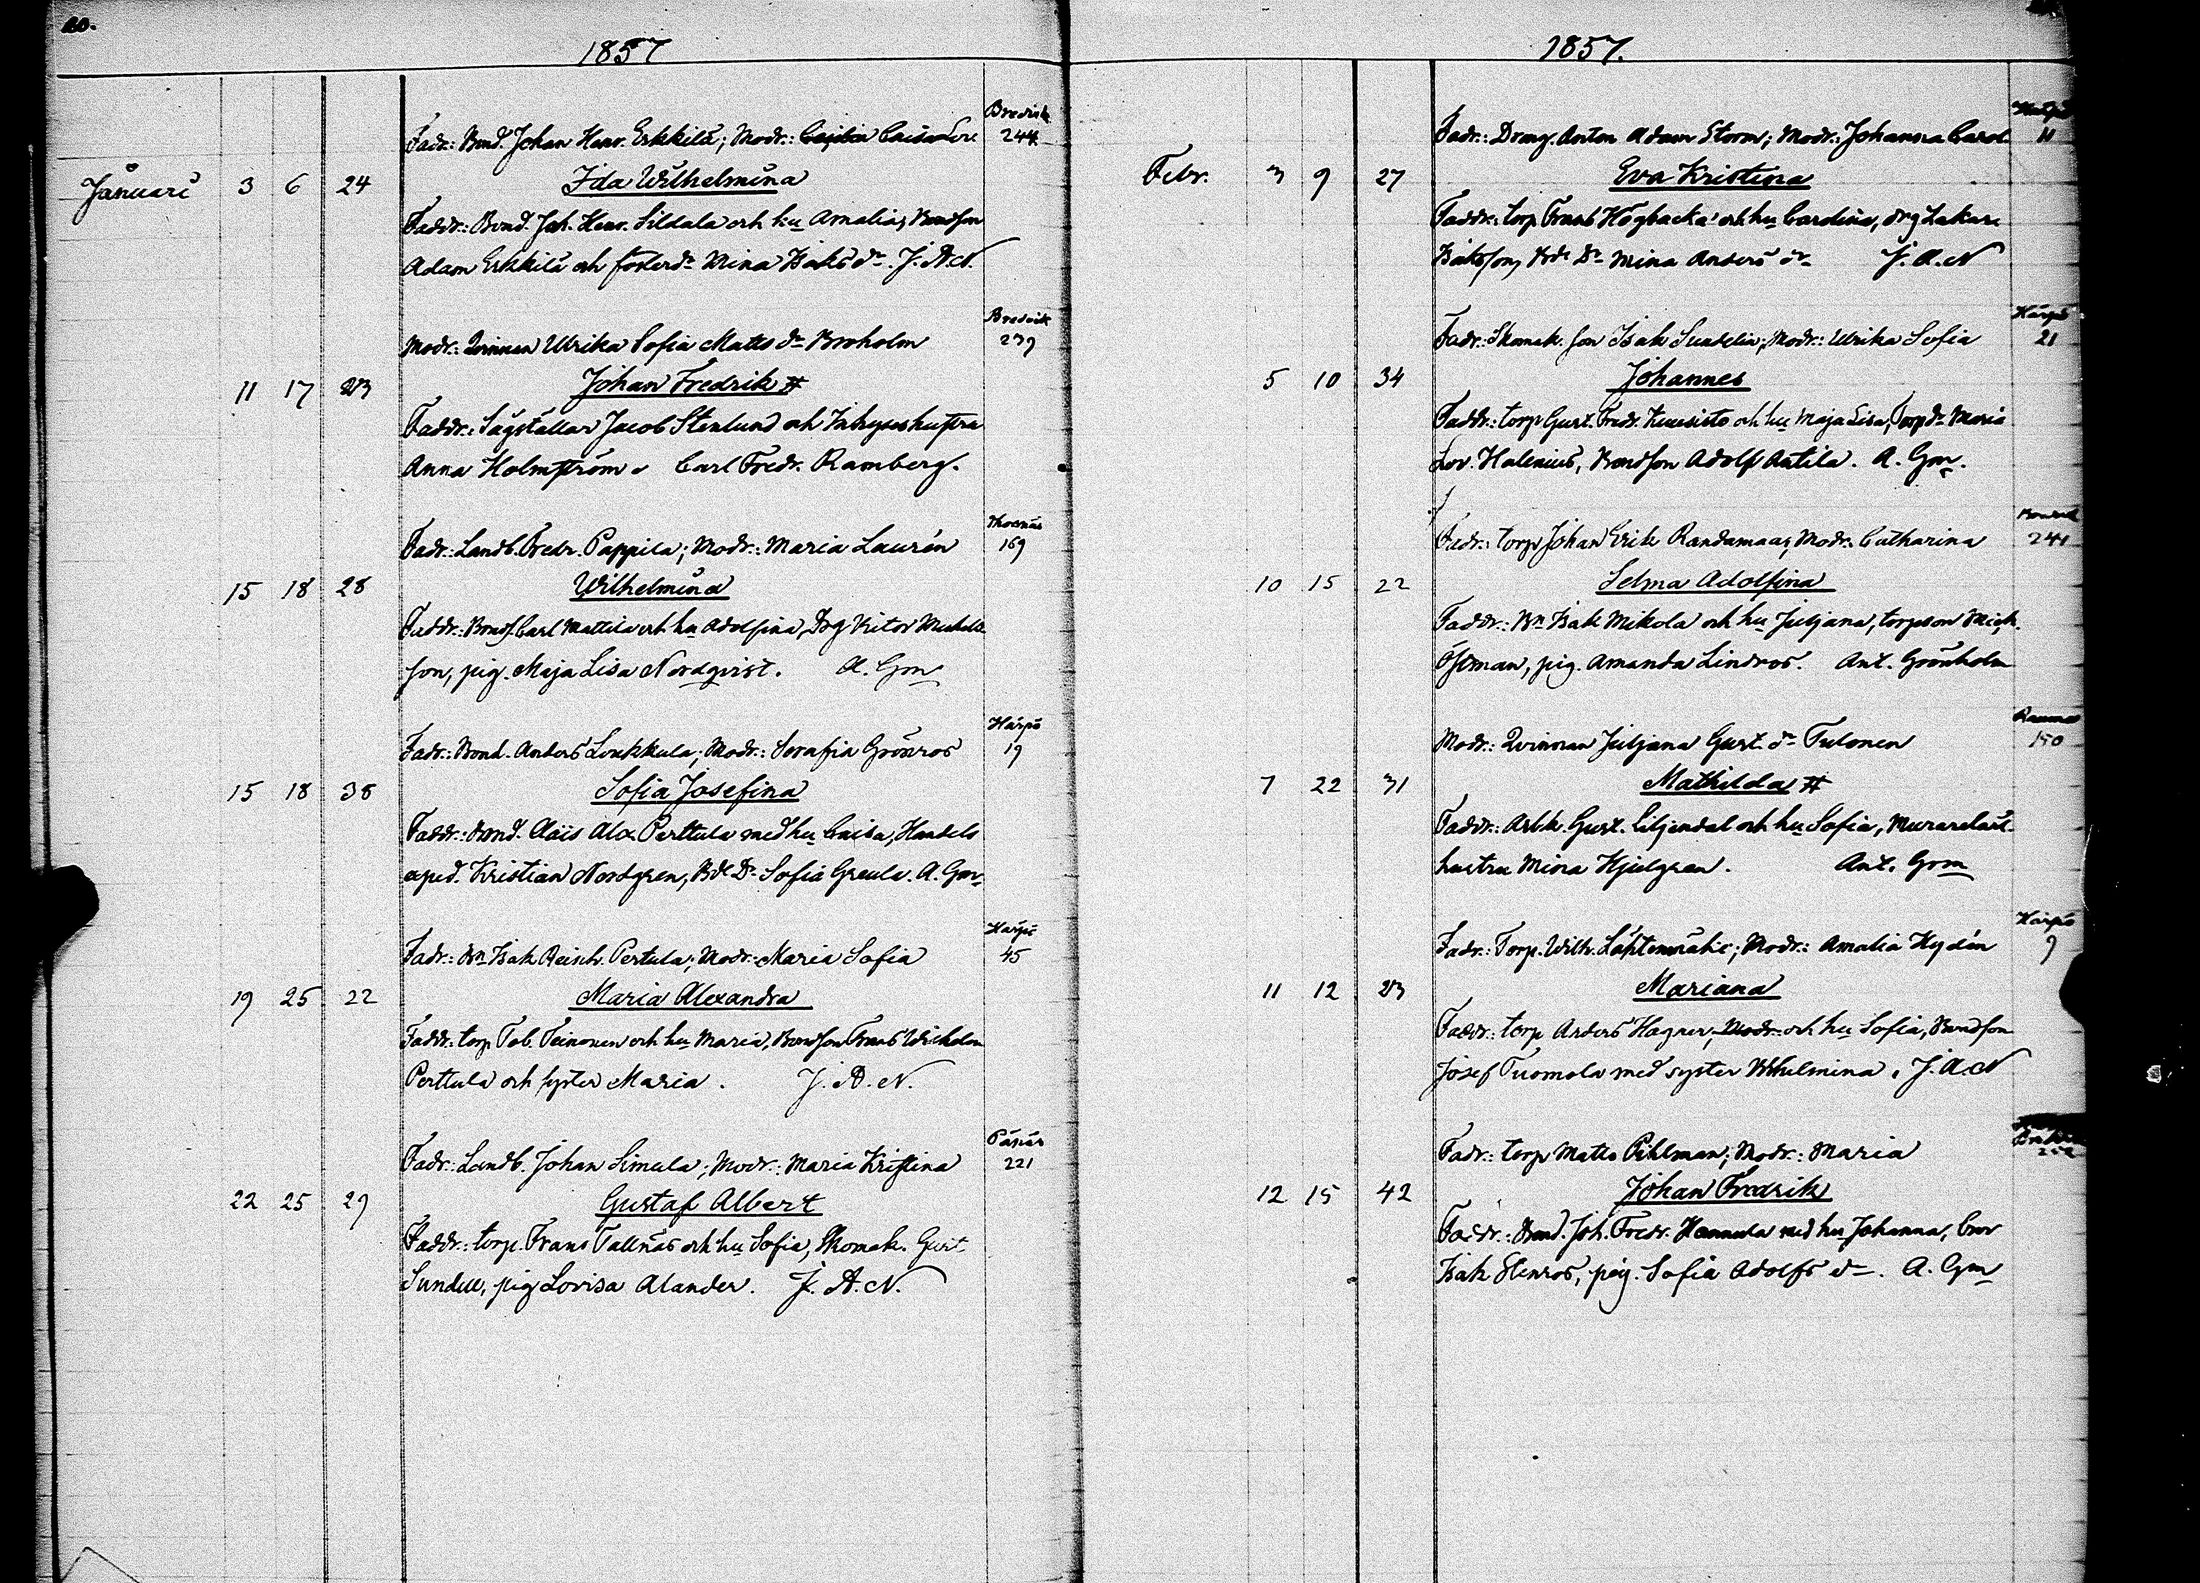 20.
1857
Bredvik
Fadr: Bnd. Johan Henr. Erkkilä; Modr: Caisa Lov. 244
Januari 3 6 24 Ida Wilhelmina
Faddr: Bond. Joh. Henr. Sildala och hu Amalia, Bondson
Adam Erkkilä och fosterdr Mina Isaks dr. J. A. N.
Bredvik
Modr: Qvinnan Ulrika Sofia Matts dr Broholm 239
11 17 23 Johan Fredrik #
Faddr: Sågställar Jacob Stenlund och Inhyseshustru
Anna Holmström. Carl Fredr. Ramberg.
Fadr: Landb. Fredr. Pappila; Modr: Maria Laurén 169
15 18 28 Wilhelmina
Faddr: Bonds. Carl Mattila och hu Adolfina, Drg Victor Michels
son, pig. Maja Lisa Nordqvist. A. Gm
Härpö
Fadr: Bond. Anders Loukkula; Modr: Serafia Grönros 19
15 18 38 Sofia Josefina
Faddr: Bond. Claës Alex. Perttula med hu Caisa, Handels
exped. Kristian Nordgren, Bde Dr. Sofia Greula. A. Gm
Härpö
Fadr: Bn Isak Reinh. Pertula; Modr: Maria Sofia 45
19 25 22 Maria Alexandra
Faddr: torp. Tob. Teinonen och hu Maria, Bondson Frans Wilhelm
Perttula och syster Maria. J. A. N.
Päpäs
Fadr: Landb. Johan Simula; Modr: Maria Kristina 221
22 25 29 Gustaf Albert
Faddr: torp. Frans Tallnäs och hu Sofia, Skomak. Gust.
Sundell, pig Lovisa Alander. J. A. N.
1857.
Fadr: Dreng. Anton Adam Storm; Modr: Johanna Carol. 11
Febr. 3 9 27 Eva Kristina
Faddr: torp. Frans Högbacka och hu Carolina, drg Zakari
Isaksson, Bde Dr Mina Anders dr J. A. N
Härpö
Fadr: Skomak. son Isak Sundelin; Modr: Ulrika Sofia 21
5 10 34 Johannes
Faddr: torp Gust. Fredr. Kuusisto och hu Maja Lisa, Torp dr Maria
Lov. Halenius, Bondson Adolf Antila. A. Gm.
Fadr: torp Johan Erik Randamaa; Modr: Catharina 241
10 15 22 Selma Adolfina
Faddr: Bn Isak Mikola och hu Juljana, torpson Mich.
Östman, pig. Amanda Lindros. Ant. Grönholm
Raumo
Modr: Qvinnan Juljana Gust. dr Tulonen 150
7 22 31 Mathilda #
Faddr: Arbk. Gust. Liljendal och hu Sofia, Murarelärl.
hustru Mina Hjulgren. Ant. Grm
Härpö
Fadr: Torp. Wilh. Lähtenmäki; Modr: Amalia Hydén 9
11 12 23 Mariana
Faddr: torp Anders Hagner, Modr och hu Sofia, Bondson
Josef Tuomola med syster Wilhelmina. J. A. N
Fadr: torp Matts Pihlman; Modr: Maria
12 15 42 Johan Fredrik
Faddr: Bond. Joh. Fredr. Hannula med hu Johanna,
Isak Stenros, pig. Sofia Adolfs dr. A. Gm